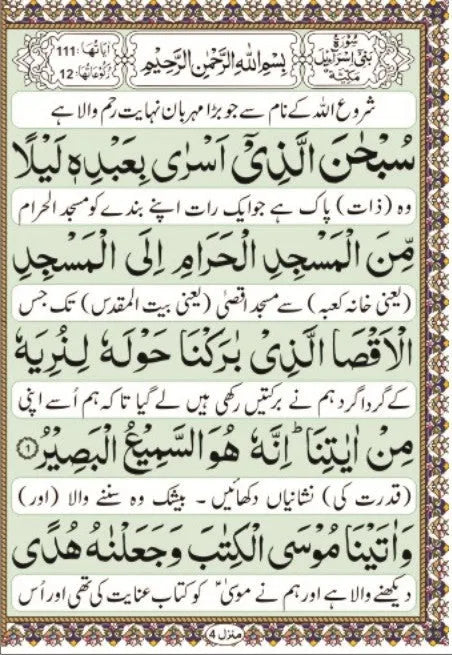 سُورَةُ بَنِیْٓ اِسْرَآءِیْلَ مَكِّیَّةٌ
بِسْمِ اللهِ الرَّحْمٰنِ الرَّحِیْمِ
اٰیَاتُهَا: 111
رُكُوْعَاتُهَا: 12
شروع اللہ کے نام سے جو بڑا مہربان نہایت رحم والا ہے
سُبْحٰنَ الَّذِیْۤ اَسْرٰی بِعَبْدِهٖ لَیْلًا
وہ (ذات) پاک ہے جو ایک رات اپنے بندے کو مسجد الحرام
مِّنَ الْمَسْجِدِ الْحَرَامِ اِلَی الْمَسْجِدِ
(یعنی خانہ کعبہ) سے مسجد اقصیٰ (یعنی بیت المقدس) تک جس
الْاَقْصَا الَّذِیْ بٰرَكْنَا حَوْلَهٗ لِنُرِیَهٗ
کے گردا گرد ہم نے برکتیں رکھی ہیں لے گیا تاکہ ہم اُسے اپنی
مِنْ اٰیٰتِنَا ؕ اِنَّهٗ هُوَ السَّمِیْعُ الْبَصِیْرُ ۝۱
(قدرت کی) نشانیاں دکھائیں ۔ بیشک وہ سننے والا (اور)
وَ اٰتَیْنَا مُوْسَی الْكِتٰبَ وَ جَعَلْنٰهُ هُدًی
دیکھنے والا ہے اور ہم نے موسیٰ ؑ کو کتاب عنایت کی تھی اور اُس
منزل 4